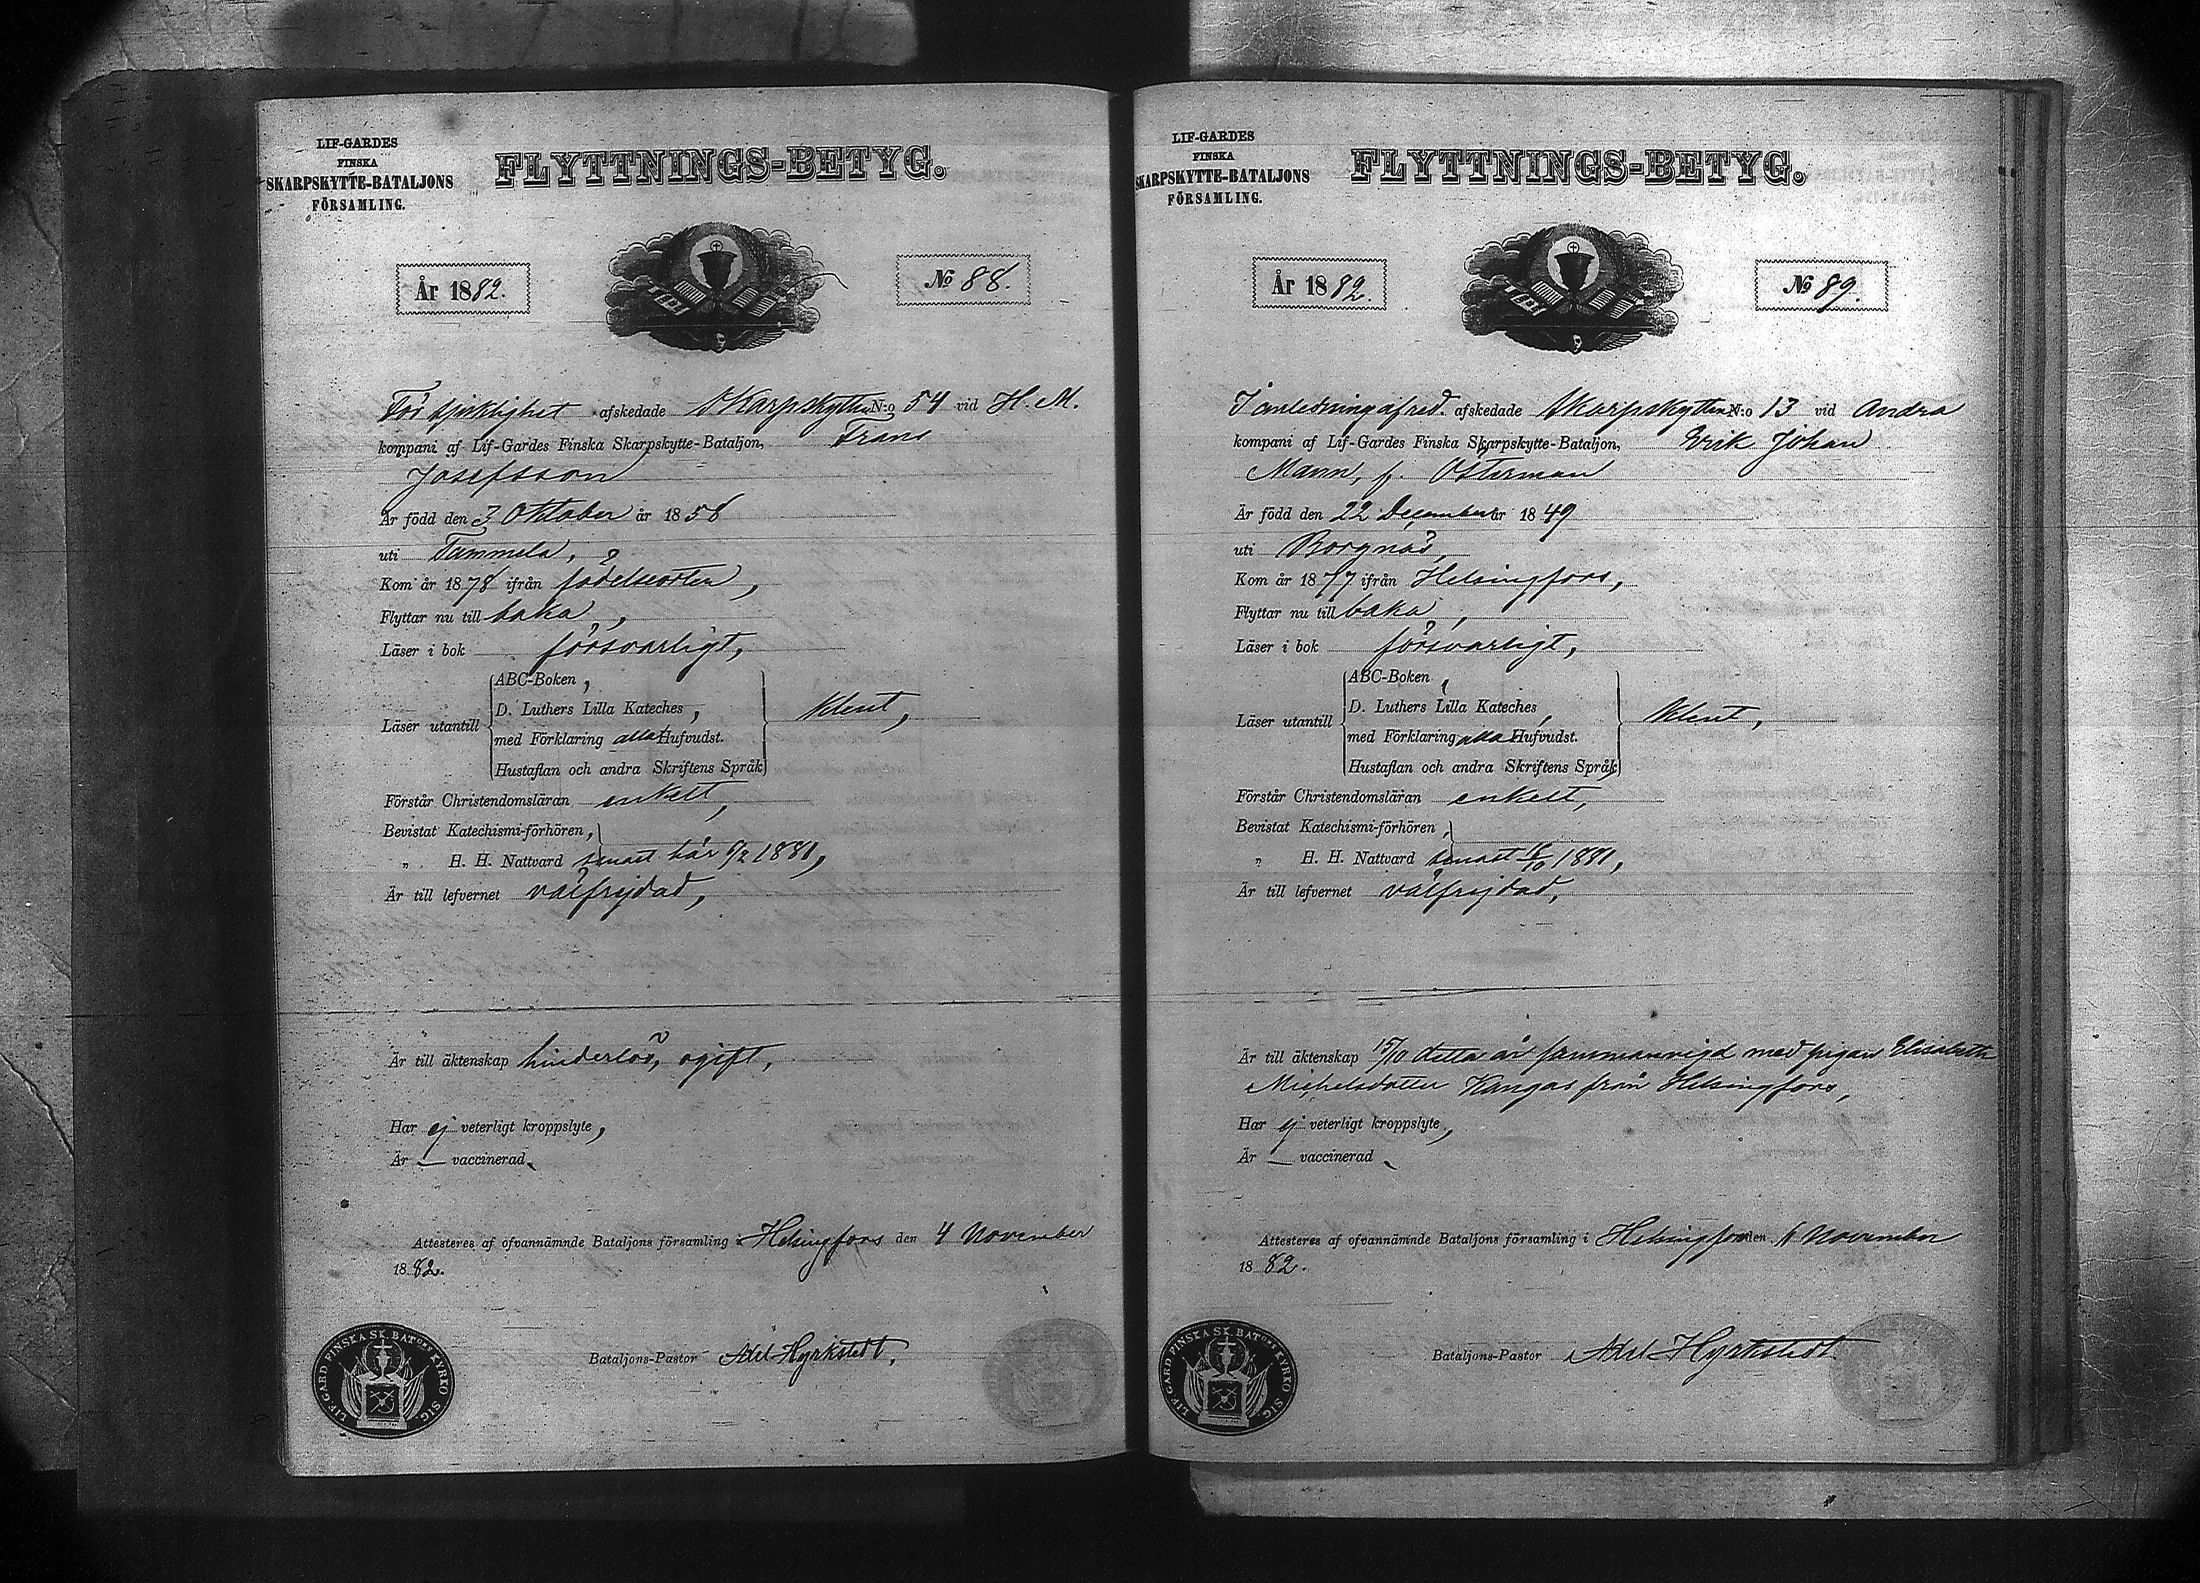 LIF-GARDES
FINSKA
SKARPSKYTTE-BATALJONS
FÖRSAMLING.
FLYTTNINGS-BETYG.
År 1882.
No 88.
För sjuklighet afskedade Skarpskytten N:o 54 vid H. M.
kompani af Lif-Gardes Finska Skarpskytte-Bataljon, Frans
Josefsson
Är född den 3 Oktober år 1858
uti Tammela,
Kom år 1878 ifrån födelseorten,
Flyttar nu till baka,
Läser i bok försvarligt,
ABC-Boken,
D. Luthers Lilla Kateches,
Läser utantill klent,
med Förklaring alla Hufvudst.
Hustaflan och andra Skriftens Språk
Förstår Christendomsläran enkelt,
Bevistat Katechismi-förhören,
„ H. H. Nattvard senast här 6/2 1881,
Är till lefvernet välfrejdad,
Är till äktenskap hinderlös, ogift,
Har ej veterligt kroppslyte,
Är — vaccinerad.
Attesteras af ofvannämnde Bataljons församling i Helsingfors den 4 November
1882.
Bataljons-Pastor Axel Hyrkstedt.
LIF-GARD. FINSKA SK. BATONS KYRKO SIG.
LIF-GARDES
FINSKA
SKARPSKYTTE-BATALJONS
FÖRSAMLING.
FLYTTNINGS-BETYG.
År 1882.
No 89.
I anledning af red. afskedade Skarpskytten N:o 13 vid Andra
kompani af Lif-Gardes Finska Skarpskytte-Bataljon, Erik Johan
Mann, f. Österman
Är född den 22 December år 1849
uti Borgnäs,
Kom år 1877 ifrån Helsingfors,
Flyttar nu till baka,
Läser i bok försvarligt,
ABC-Boken,
D. Luthers Lilla Kateches,
Läser utantill klent,
med Förklaring alla Hufvudst.
Hustaflan och andra Skriftens Språk
Förstår Christendomsläran enkelt,
Bevistat Katechismi-förhören,
„ H. H. Nattvard senast /10 1881,
Är till lefvernet välfrejdad,
Är till äktenskap 15/10 detta år sammanvigd med pigan Elisabeth
Michelsdotter Kangas från Helsingfors,
Har ej veterligt kroppslyte,
Är — vaccinerad
Attesteras af ofvannämnde Bataljons församling i Helsingfors den November
1882.
Bataljons-Pastor Axel Hyrkstedt
LIF-GARD. FINSKA SK. BATONS KYRKO SIG.